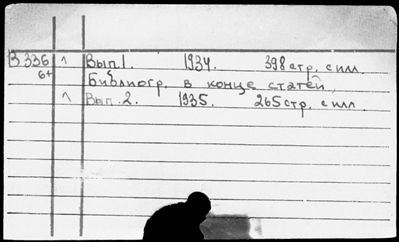 В 336 ^ Вып 1. 1934. 398 стр. с илл.
64 Библиогр. в конце статей.
^ Вып. 2. 1935. 265 стр. с илл.